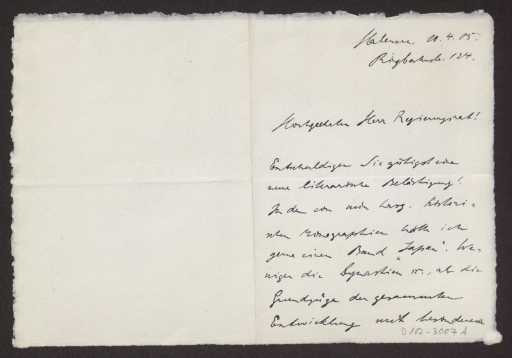 Halensee. 11.4.05.
Ringbahnstr. 124.
Hochgeehrter Herr Regierungsrat!
Entschuldigen Sie gütigst eine
neue literarische Belästigung!
In den von mir herg. histori-
schen Monographien hätte ich
gerne einen Band „Japan". We-
niger die Dynastien, als die
Grundzüge der gesammten
Entwicklung mit besonderer
D 112-3007 A